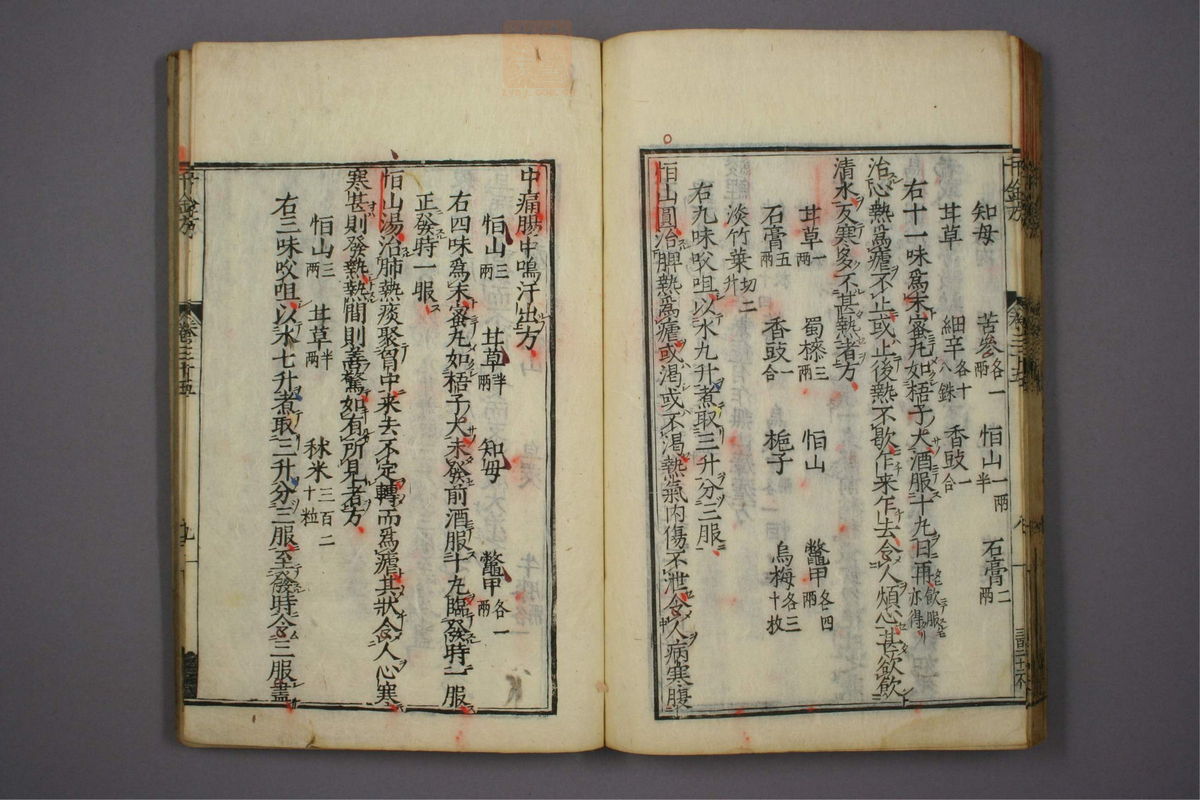 知母 苦參各一兩 恒山一兩半 石膏二兩
甘草 細辛各十八銖 香豉一合
右十一味爲末蜜丸如梧子大酒服十丸日再飲服亦得
治心熱爲瘧不止或止後熱不歇乍来乍去令人煩心甚欲飲
清水反寒多不甚熱者方
甘草一兩 蜀㯃三兩 恒山 鱉甲各四兩
石膏五兩 香豉一合 梔子 烏梅各三十枚
淡竹葉切二升
右九味㕮咀以水九升煮取三升分三服
恒山圓治脾熱爲瘧或渴或不渴熱氣内傷不泄令人病寒腹
中痛腸中鳴汗出方
恒山三兩 甘草半兩 知母 鱉甲各一兩
右四味爲末蜜丸如梧子大未發前酒服十丸臨發時一服
正發時一服
恒山湯治肺熱痰聚胷中来去不定轉而爲瘧其狀令人心寒
寒甚則發熱熱間則善驚如有所見者方
恒山三兩 甘草半兩 秫米三百二十粒
右三味㕮咀以水七升煮取三升分三服至發時令三服盡
千金方
卷三十五
九